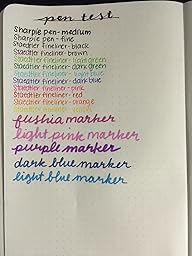 pen test
Sharpie pen - medium
Sharpie pen - fine
Staedtler fineliner - black
Staedtler fineliner - brown
Staedtler fineliner - light green
Staedtler fineliner - dark green
Staedtler fineliner - light blue
Staedtler fineliner - dark blue
Staedtler fineliner - pink
Staedtler fineliner - red
Staedtler fineliner - orange
Staedtler fineliner - yellow
fushia marker
light pink marker
purple marker
dark blue marker
light blue marker